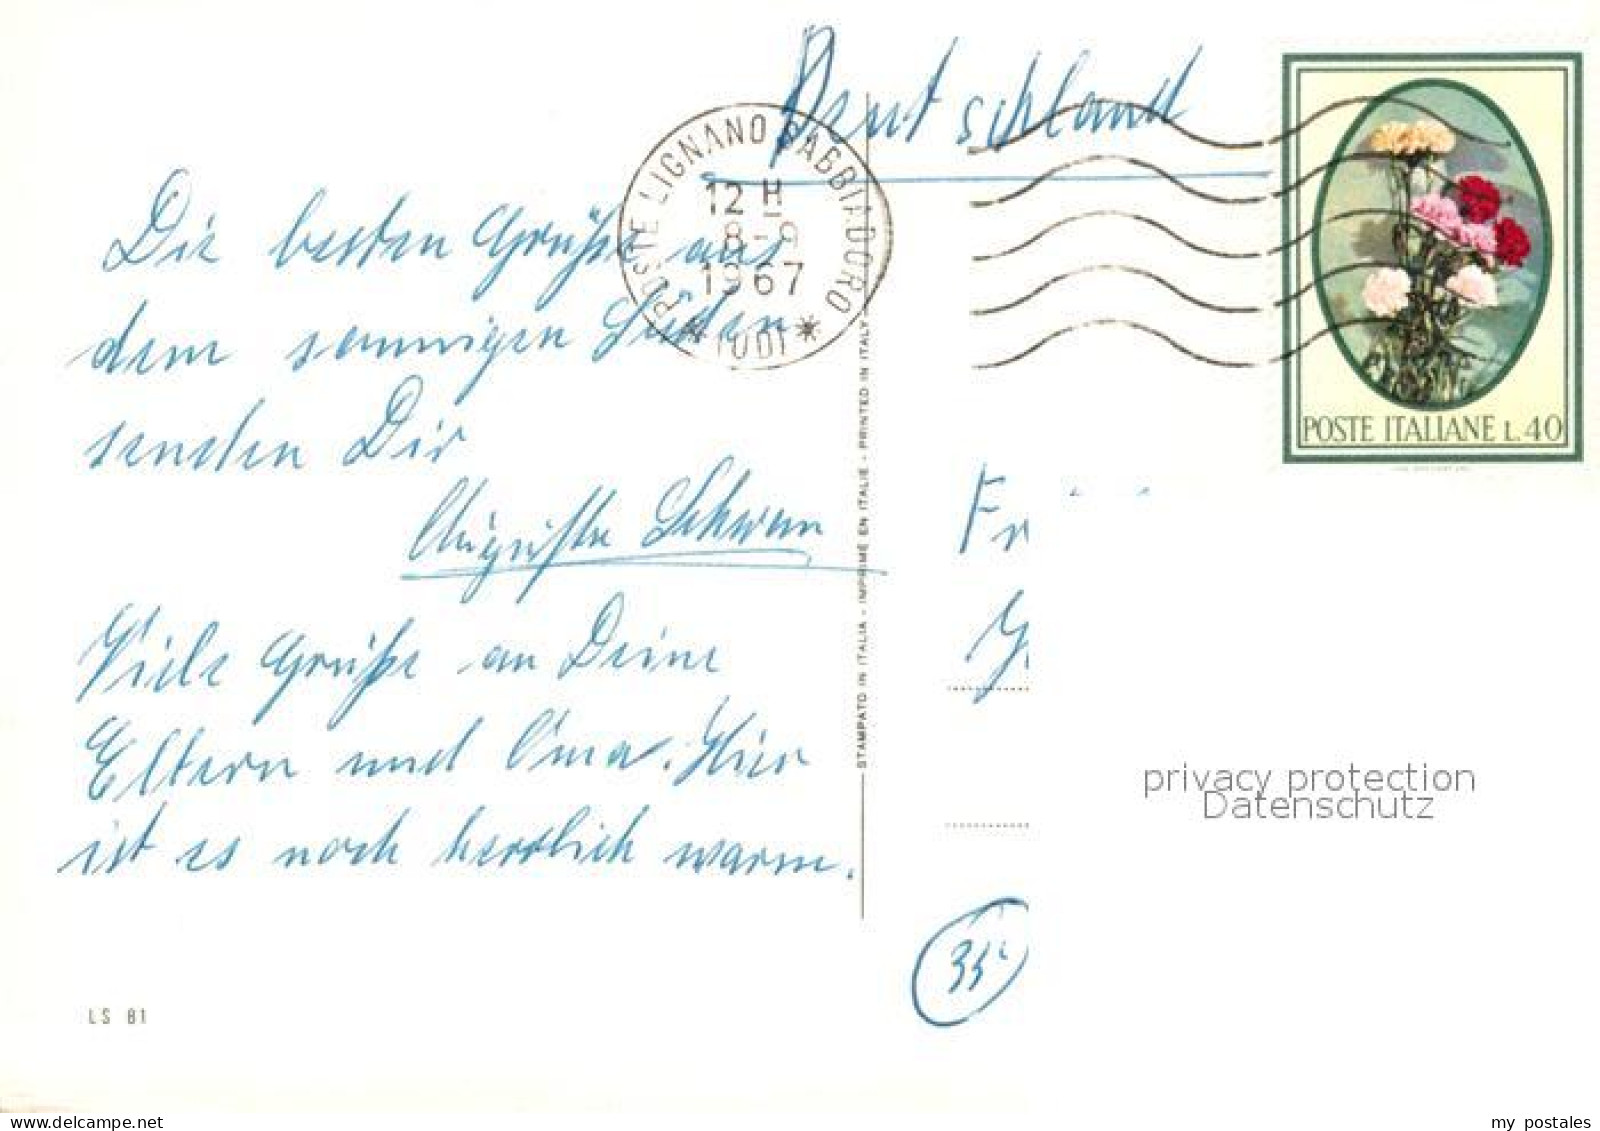 Deutschland
POSTE LIGNANO SABBIADORO
12 H
8-9
1967
* (UD) *
POSTE ITALIANE L.40
Die besten Grüße aus
dem sonnigen Süden
senden Dir
Auguste Schwan
Viele Grüße an Deine
Eltern und Oma. Hier
ist es noch herrlich warm.
STAMPATO IN ITALIA - IMPRIMÉ EN ITALIE - PRINTED IN ITALY
Fr
privacy protection
Datenschutz
LS 81
my postales